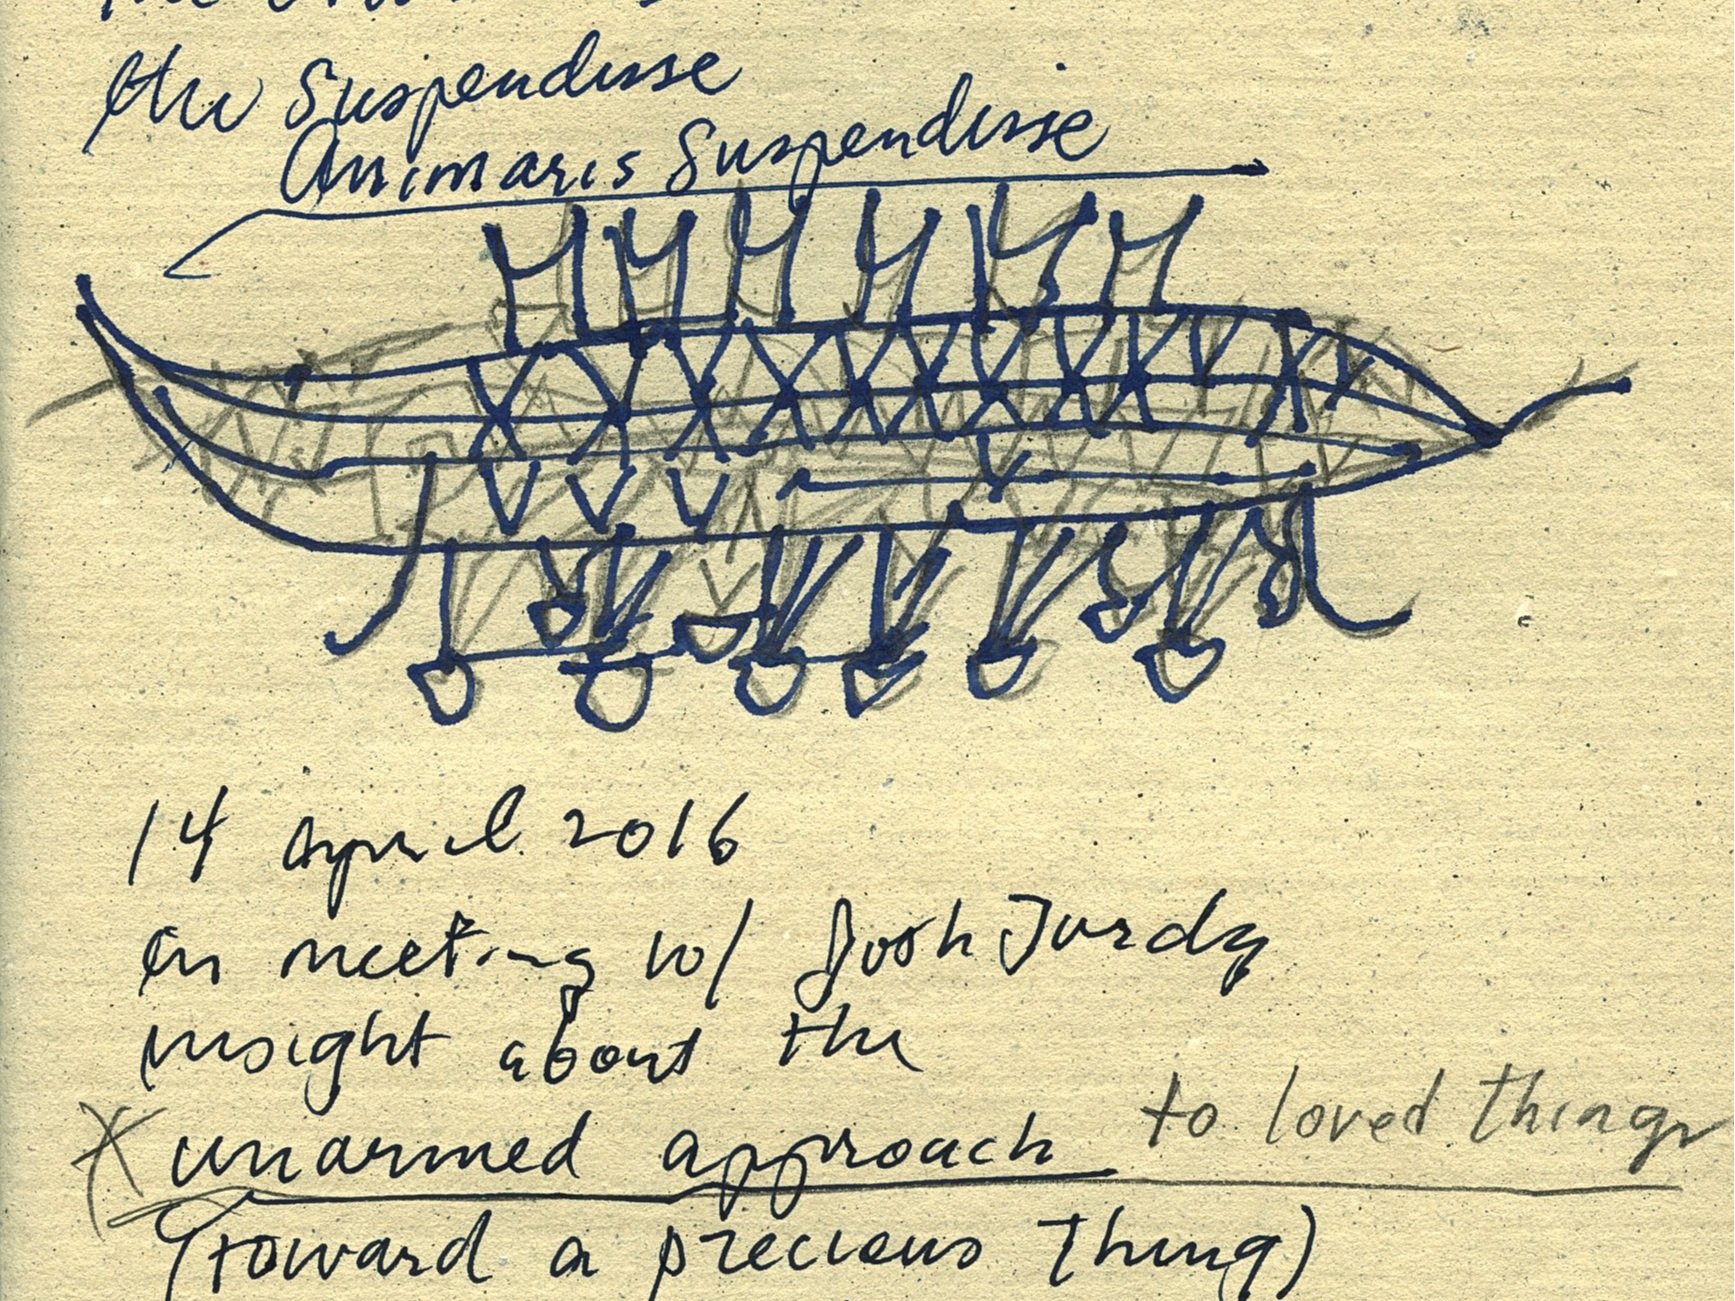 the Suspendisse
Animaris Suspendisse
14 April 2016
in meeting w/ Josh
insight about the
unarmed approach to loved things
(toward a precious thing)